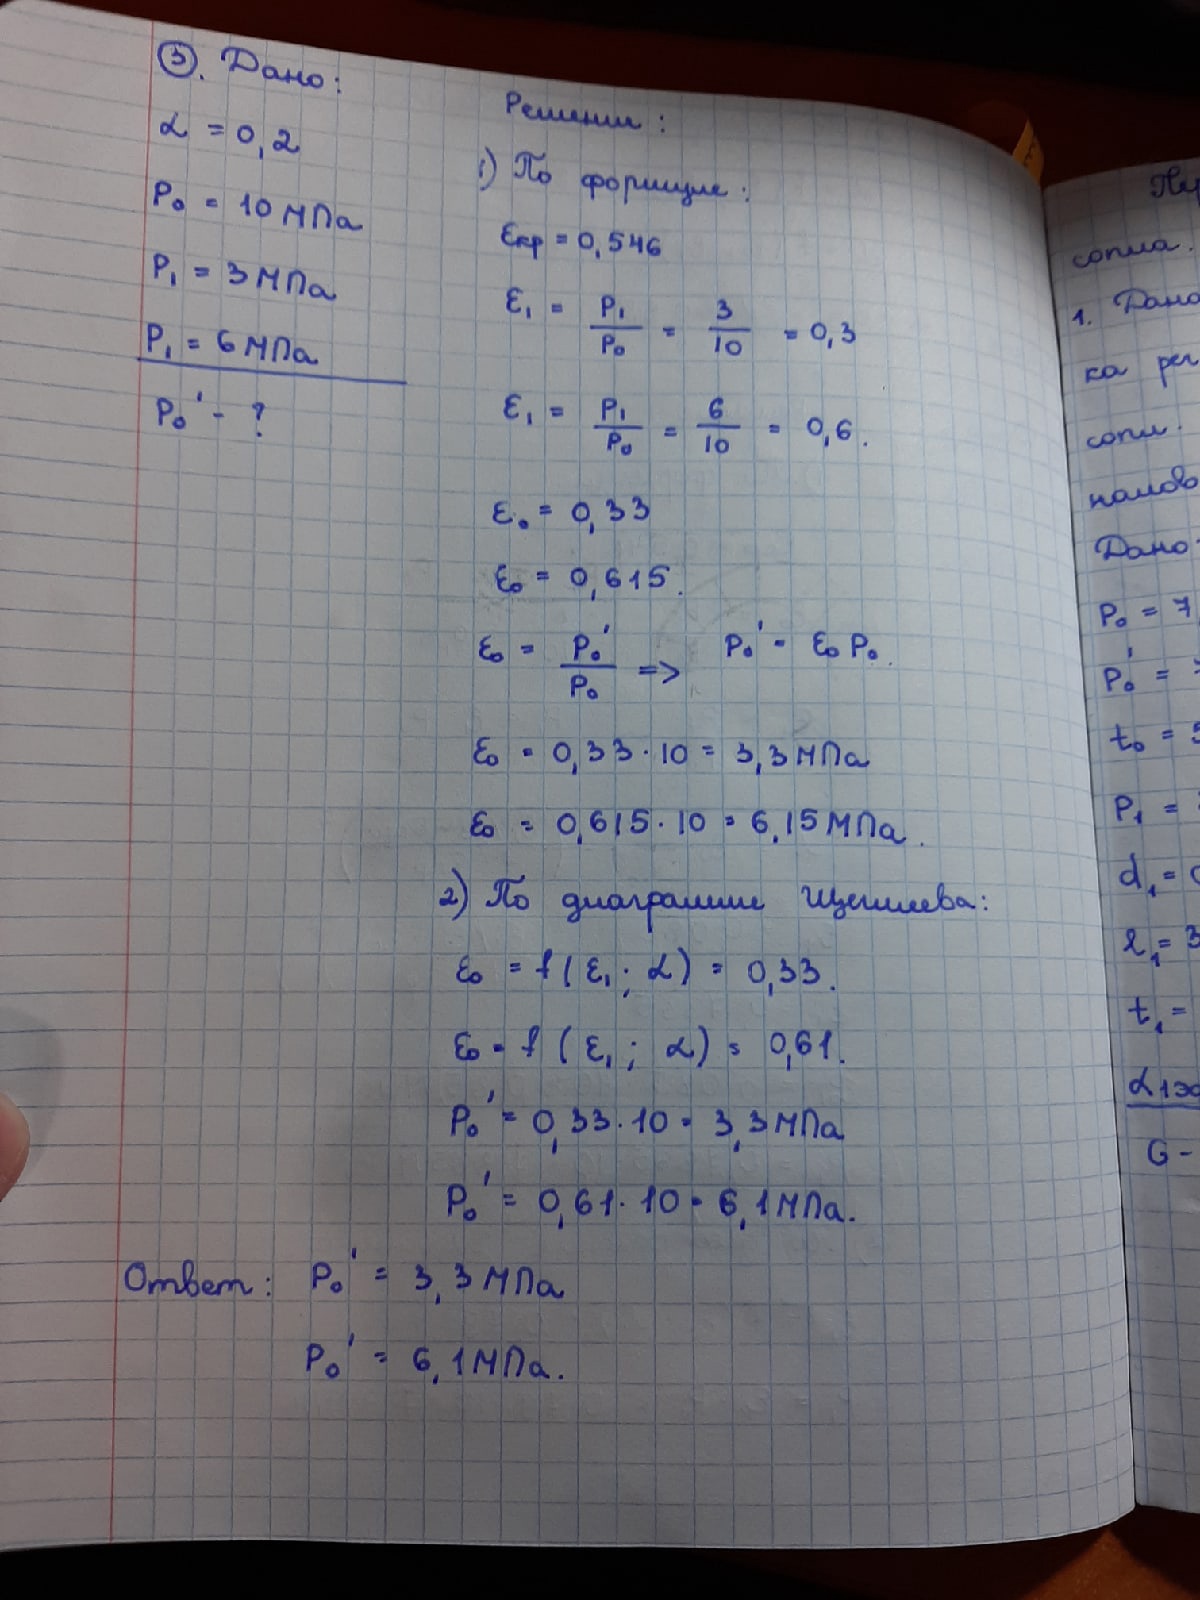 3). Дано:
α = 0,2
P₀ = 10 МПа
P₁ = 3 МПа
P₁ = 6 МПа
P₀' - ?
Решение:
1) По формуле:
εкр = 0,546
ε₁ = P₁/P₀ = 3/10 = 0,3
ε₁ = P₁/P₀ = 6/10 = 0,6.
ε₀ = 0,33
ε₀ = 0,615.
ε₀ = P₀'/P₀ => P₀' = ε₀ P₀.
ε₀ = 0,33 · 10 = 3,3 МПа
ε₀ = 0,615 · 10 = 6,15 МПа.
2) По диаграмме Щегляева:
ε₀ = f (ε₁; α) = 0,33.
ε₀ = f (ε₁; α) = 0,61.
P₀' = 0,33 · 10 = 3,3 МПа
P₀' = 0,61 · 10 = 6,1 МПа.
Ответ: P₀' = 3,3 МПа
P₀' = 6,1 МПа.
сопла.
1. Дано
ка рег
сопл.
Дано
P₀ = 7,
P₀' =
t₀ = 5
P₁ =
d₁ = 0
l₁ = 3
t₁ =
α₁э
G -